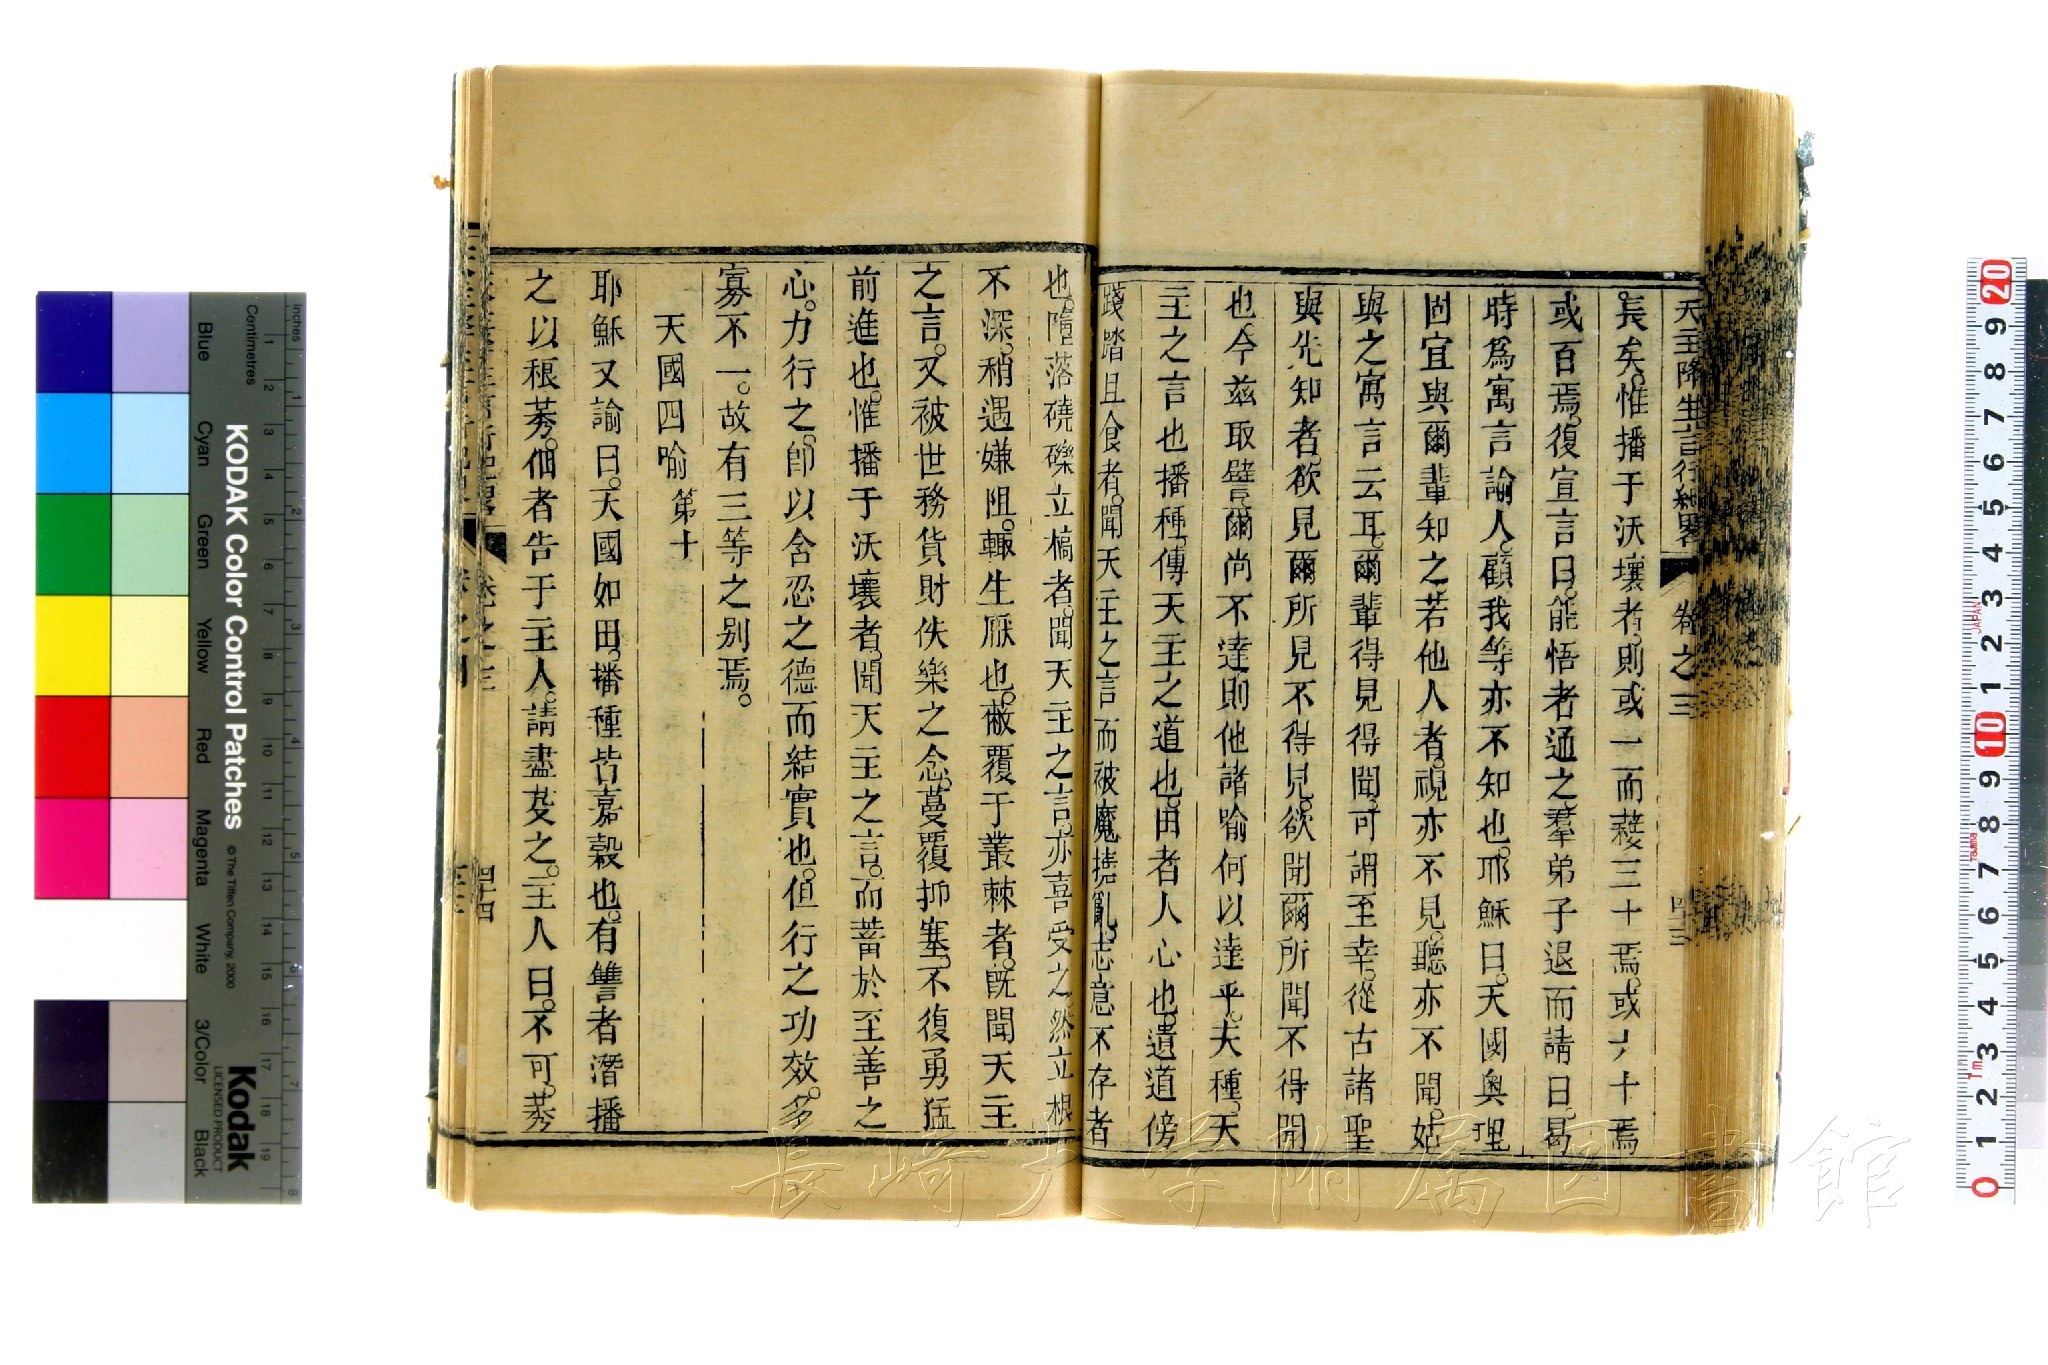 天主降生言行紀畧 卷之三 四十三
長矣。惟播于沃壤者。則或一而發三十焉。或六十焉
或百焉。復宣言曰。能悟者通之。羣弟子退而請曰。曷
時爲寓言論人。顧我等亦不知也。耶穌曰。天國奧理
固宜與爾輩知之。若他人者。視亦不見。聽亦不聞。姑
與之寓言云耳。爾輩得見得聞。可謂至幸。從古諸聖
與先知者。欲見爾所見不得見。欲聞爾所聞不得聞
也。今兹取譬。爾尚不達。則他諸喻何以達乎。夫種。天
主之言也。播種。傳天主之道也。田者人心也。遺道傍
踐踏且食者。聞天主之言而被魔攪亂。志意不存者
也。墮落磽礫立槁者。聞天主之言。亦喜受之。然立根
不深。稍遇嫌阻。輙生厭也。蔽覆于叢棘者。旣聞天主
之言。又被世務貨財佚樂之念。蔓覆抑塞。不復勇猛
前進也。惟播于沃壤者。聞天主之言。而蓄於至善之
心。力行之。卽以含忍之德而結實也。但行之功效。多
寡不一。故有三等之别焉。
天國四喻 第十
耶穌又諭曰。天國如田。播種皆嘉穀也。有讐者潛播
之以稂莠。佃者告于主人。請盡芟之。主人曰。不可。莠
卷之三 四十四
Blue Cyan Green Yellow Red Magenta White 3/Color Black
Centimetres
inches
KODAK Color Control Patches
© The Tiffen Company, 2000
Kodak
LICENSED PRODUCT
JAPAN
長崎大学附属図書館